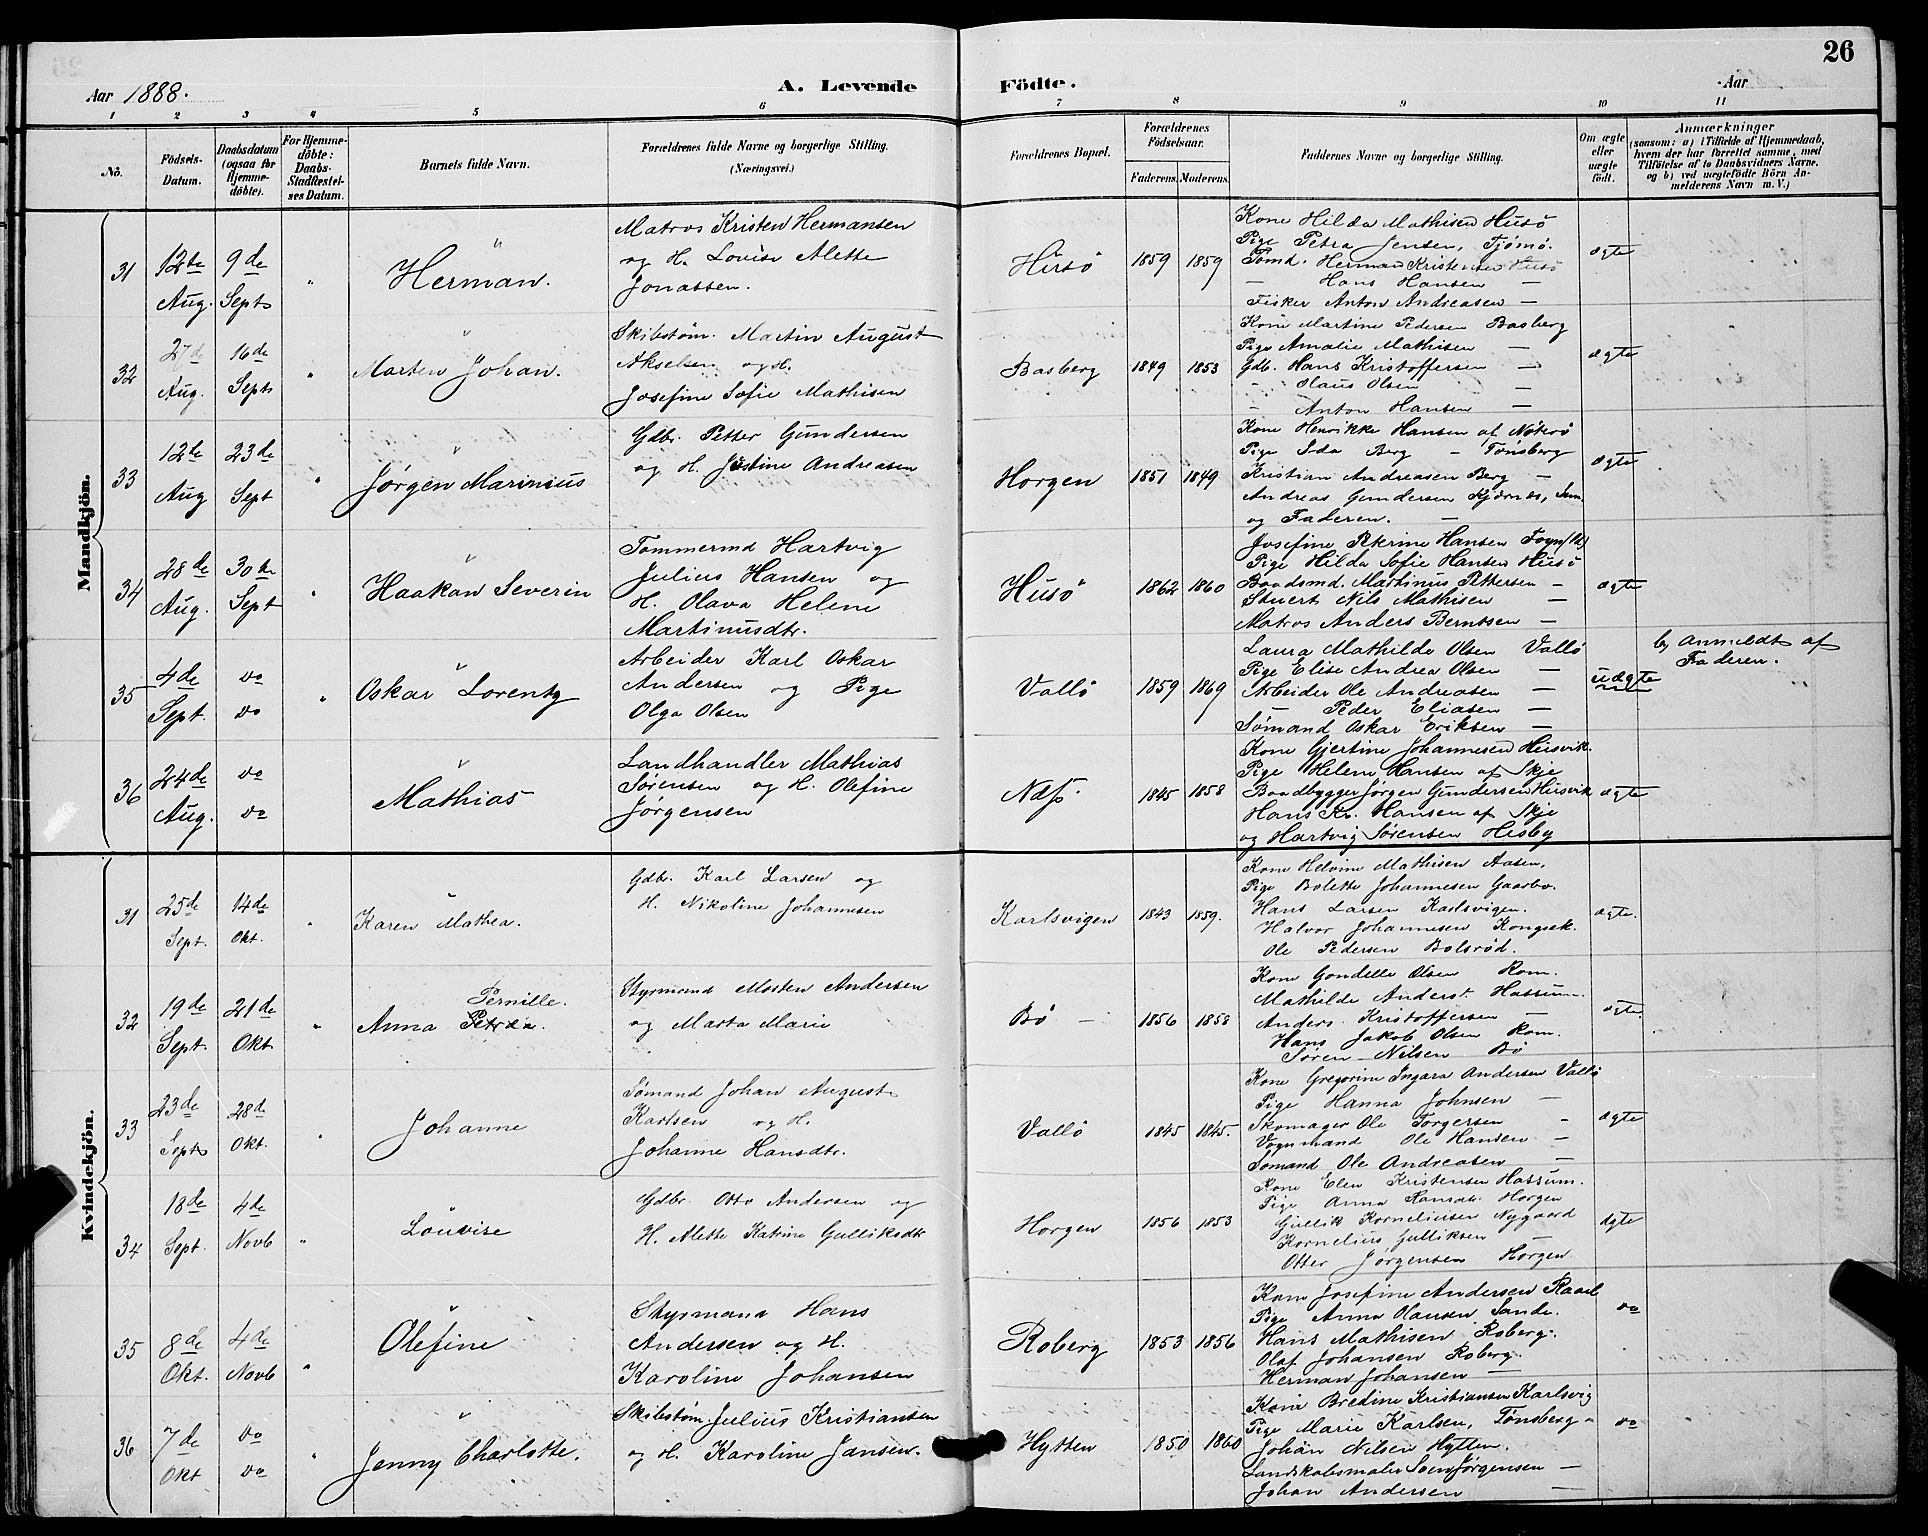 26
Aar 1888.
A. Levende Födte.
Aar
1 2 3 4 5 6 7 8 9 10 11
Nô.
Födsels-Datum.
Daabsdatum (ogsaa for Hjemme-döbte).
For Hjemme-döbte: Daabs-Stadfæstel-ses Datum.
Barnets fulde Navn.
Forældrenes fulde Navne og borgerlige Stilling. (Næringsvei.)
Forældrenes Bopæl.
Forældrenes Födselsaar.
Faderens. Moderens.
Faddernes Navne og borgerlige Stilling.
Om ægte eller uægte födt.
Anmærkninger
(saasom: a) i Tilfælde af Hjemmedaab,
hvem der har forrettet samme, med
Tilföielse af to Daabsvidners Navne.
og b) ved uægtefödte Börn An-
melderens Navn m. V.)
Mandkjön.
31 12te Aug. 9de Sept " Herman.
Matros Kristen Hermansen
og H. Lovise Alette
Jonassen.
Husö 1859 1859
Kone Hilda Mathisen Husö
Pige Petra Jensen, Tjömö.
Tömd. Herman Kristensen Husö
— Hans Hansen —
Fisker Anton Andreasen —
ægte
32 27de Aug. 16de Sept " Marten Johan.
Skibstöm. Martin August
Akselsen og H.
Josefine Sofie Mathisen
Basberg 1849 1853
Kone Martine Pedersen Basberg
Pige Amalie Mathisen —
Gdb. Hans Kristoffersen —
- Olaus Olsen —
- Anton Hansen —
ægte
33 12te Aug 23de Sept " Jørgen Marinius
Gdbr. Petter Gundersen
og H. Justine Andreasen
Horgen 1851 1849
Kone Henrikke Hansen af Nöterö
Pige Ida Berg — Tønsberg
Kristian Andreasen Berg —
Andreas Gundersen Kjærnæs, Sem.
og Faderen. —
ægte
34 28de Aug. 30te Sept " Haakon Severin
Tømmermd Hartvig
Julius Hansen og
H. Olava Helene
Martinusdtr.
Husö 1862 1860
Josefine Petrine Hansen
Pige Hilda Sofie Hansen Husö
Baadsmd. Martinus Pettersen —
Stuert Nils Mathisen —
Matros Anders Berntsen —
ægte
35 4de Sept. do do " Oskar Lorentz
Arbeider Karl Oskar
Andersen og Pige
Olga Olsen
Vallö 1859 1869
Laura Mathilde Olsen Vallö
Pige Elise Andrea Olsen —
Arbeider Ole Andreasen —
— Peder Eliasen —
Sømand Oskar Eriksen —
uægte
b, Anmeldt af
Faderen.
36 24de Aug. do do Mathias
Landhandler Mathias
Sørensen og H. Olefine
Jørgensen
Næs. 1845 1858
Kone Gjertine Johannesen Husvik.
Pige Helene Hansen af Skje
Baadbygger Jørgen Gundersen Husvik
Hans Kr. Hansen af Skje
og Hartvig Sørensen Hesby
ægte
Kvindekjön.
31 25de Sept. 14de Okt. " Karen Mathea.
Gdbr. Karl Larsen og
H. Nikoline Johannesen
Karlsvigen 1843 1859.
Kone Helvine Mathisen Aasen,
Pige Bolette Johannesen Gaarbo.
Hans Larsen Karlsvigen.
Halvor Johannesen Kongsek.
Ole Pedersen Bolsrød.
ægte.
32 19de Sept. 21de Okt. " Pernille.
Anna Petrea.
Styrmand Morten Andersen
og Marta Marie
Bö — 1856 1858
Kone Gondelle Olsen Rom.
Mathilde Anderst. Hassum.
Anders Kristoffersen —
Hans Jakob Olsen Rom.
Søren Nilsen Bö
ægte.
33 23de Sept 28de Okt. " Johanne
Sømand Johan August
Karlsen og H.
Johanne Hansdtr.
Vallö 1845 1845.
Kone Gregorine Ingara Andersen Vallö
Pige Hanna Johnsen —
Skomager Ole Torgersen —
Vognmand Ole Hansen —
Sømand Ole Andreasen —
ægte
34 18de Sept. 4de Novb " Louvise
Gdbr. Otto Andersen og
H. Alette Katrine Gulliksdtr
Horgen 1856 1853
Kone Elen Kristensen Hassum.
Pige Anna Hansdt. Horgen
Gullik Korneliusen Nygaard
Kornelius Gulliksen —
Otter Jørgensen Horgen
ægte
35 8de Okt. 4de Novb " Olefine
Styrmand Hans
Andersen og H.
Karoline Johansen
Roberg 1853 1856
Kone Josefine Andersen Raael
Pige Anna Olausen Sande.
Hans Mathisen Roberg.
Olaf Johansen Roberg.
Herman Johansen —
do
36 7de Okt do do " Jenny Charlotte.
Skibstöm. Julius Kristiansen
og H. Karoline Jansen.
Hytten 1850 1860
Kone Bredine Kristiansen Karlsvig
Pige Marie Karlsen, Tønsberg
Johan Nilsen Hytten.
Landskabsmaler Jørgensen —
Johan Andersen —
do